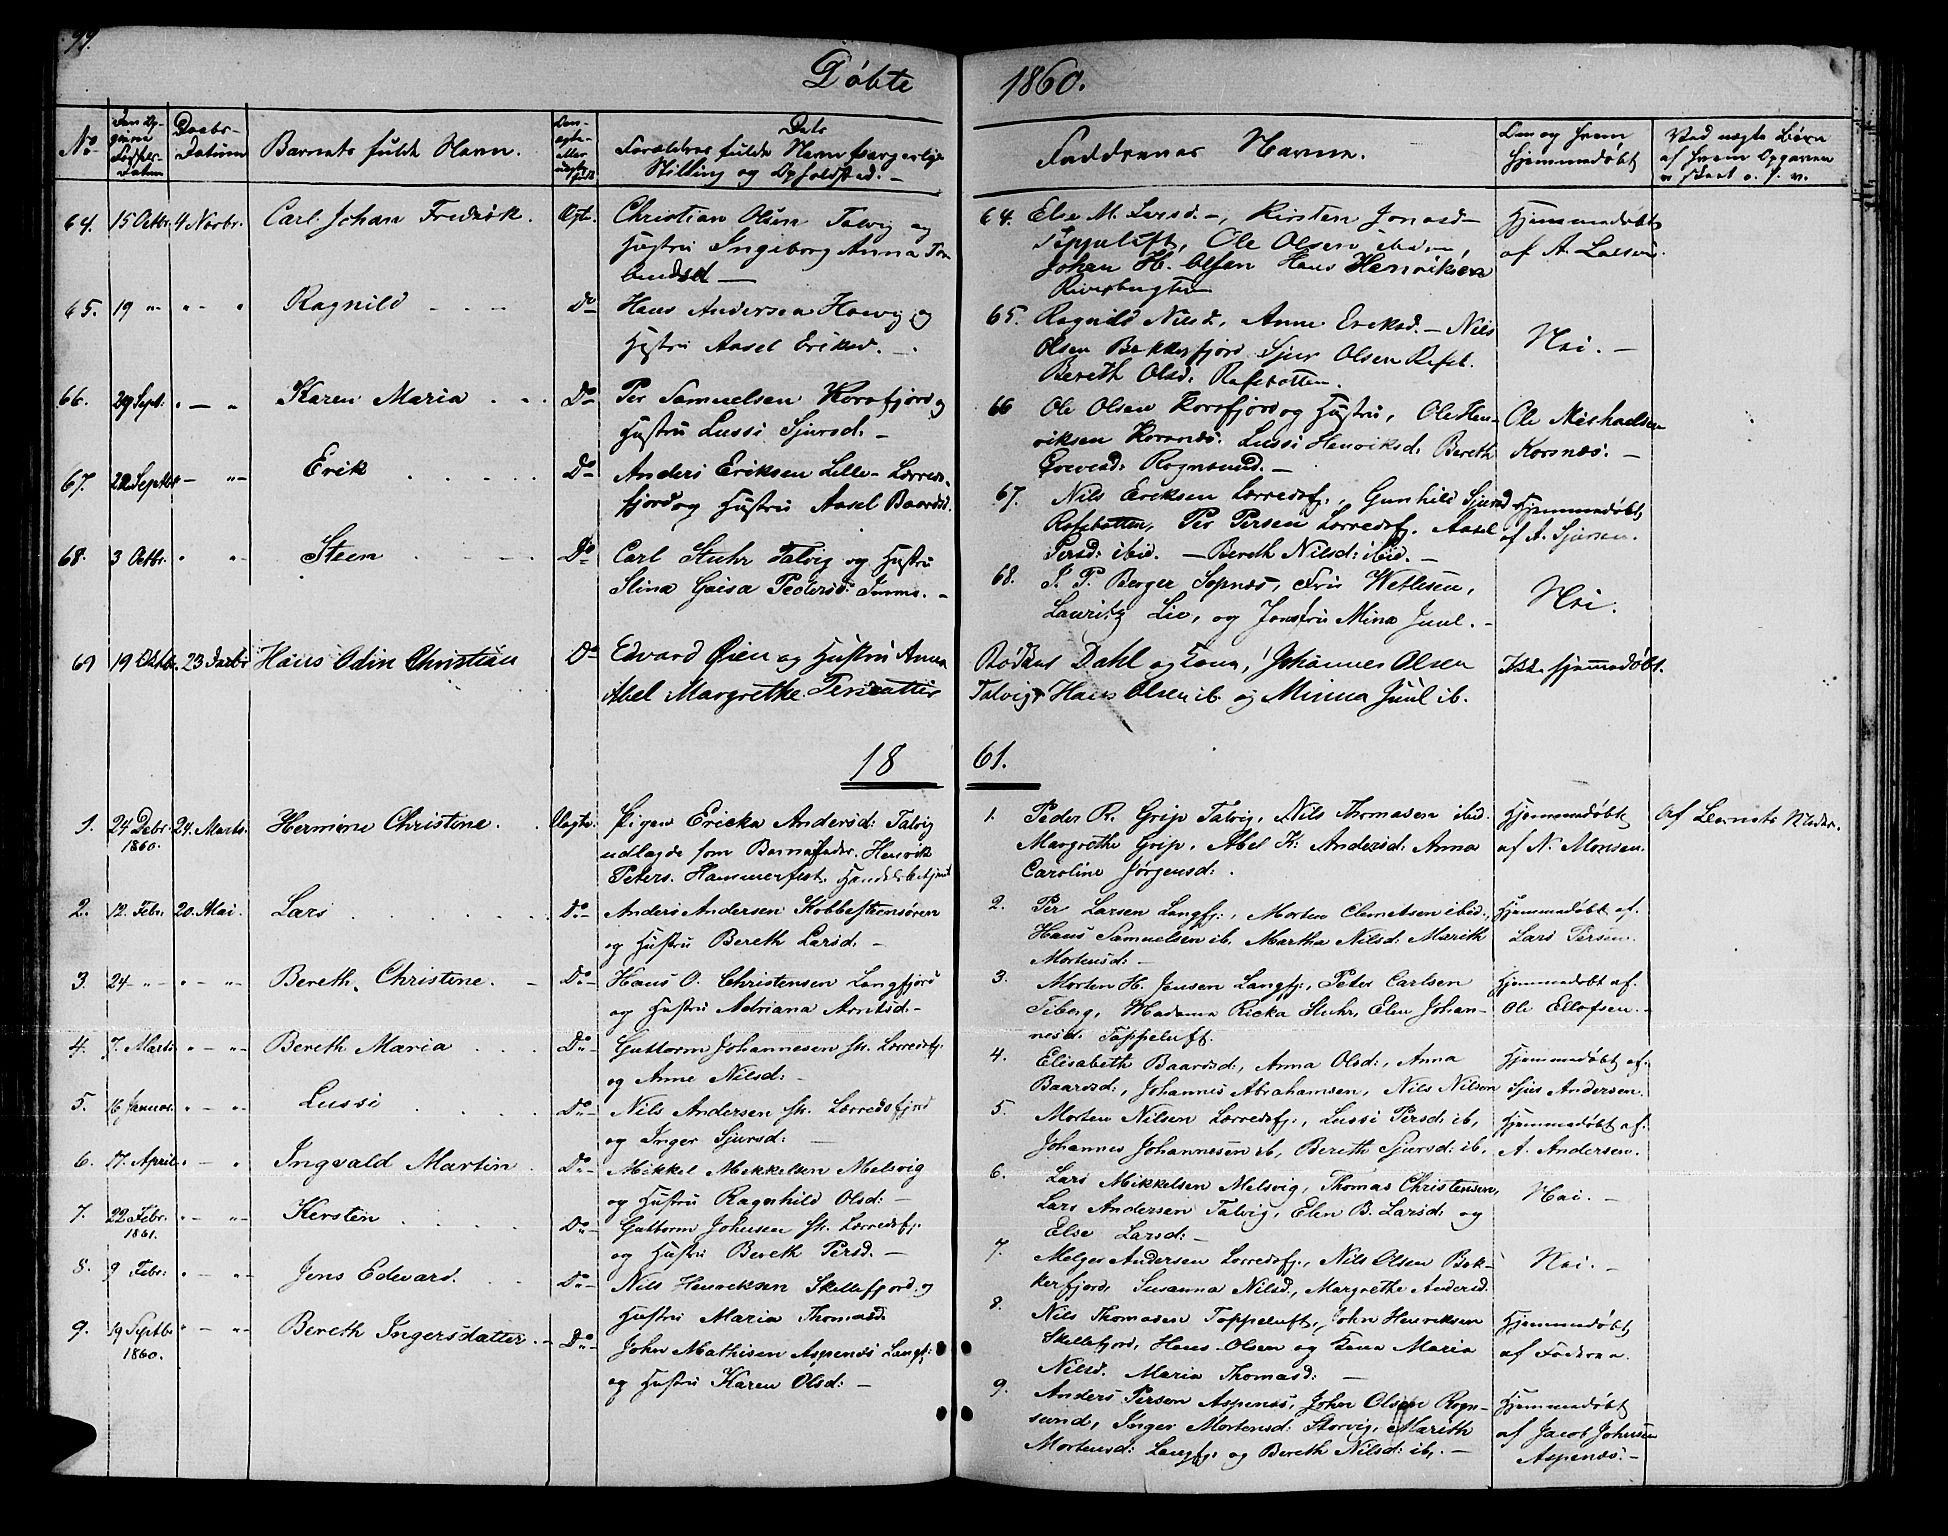 99.
Döbte 1860.
No
Daabs-
Datum
Barnets fulde Navn.
Forældres fulde Navn borgerlige
Stilling og Opholdsted. —
Faddernes Navne.
Om og hvem
hjemmedöbt
Ved uægte Börn
af hvem Opgaven
64. 15 Octbr. 4 Novbr. Carl Johan Fredrik. Ægte. Christian Olsen Talvig og
Hustru Ingeborg Anna
64. Else M. Larsd. —, Kirsten Jonasd —
Toppeluft, Ole Olsen ibidem,
Johan H. Olsen Hans Henriksen
Hjemmedöbt
af A. Larsen.
65. 19 " " " " Ragnild Do Hans Andersen Haavig og
Hustru Aasel Eriksd. —
65. Ragnild Nilsd, Anne Eriksd. — Nils
Olsen Bekkerfjord Sjur Olsen Refsb.
Bereth Olsd. Rafsbotten.
Nei. —
66. 29 Sept. " — " Karen Maria Do Per Samuelsen Korsfjord og
Hustru Lussi Sjursd. —
66 Ole Olsen Korsfjord og Hustru, Ole Hen-
riksen Korsnæs. Lussi Henriksd. Bereth
Rognsund. —
Ole Michaelsen
Korsnæs. —
67. 22 Septbr — " Erik Do Anders Eriksen Lille- Lærreds-
fjord og Hustru Aasel Baardsd.
67. Nils Eriksen Lærredsfj., Gunhild Sjursd
Rafsbotten, Per Persen Lærredsf, Aasel
Persd: ibid. — Bereth Nilsd: ibid. —
Hjemmedöbt
af A. Sjursen.
68. 3 Octbr. " " Steen Do Carl Stuhr Talvig og Hustru
Stina Gaisa Pedersd:
68. S. P. Berger Sopnæs, Fru Wetlesen,
Lauritz Lie, og Jomfru Mina Juul. —
Nei.
69 19 Oktbr. 23 Decbr Hans Odin Christian Do Edvard Öien og Hustru Anna
Abel Margrethe Persdatter
Bödker Dahl og Kone, Johannes Olsen
Talvig, Hans Olsen ib. og Minna Juul ib.
Ikke hjemmedöbt.
1861.
1. 24 Debr. 1860. 24. Marts. Hermine Christine. Uægte. Pigen Ericka Andersd: Talvig
udlagde som Barnefader. Henrik
Peters. Hammerfest. Handelsbetjent
1. Peder R. Grip Talvig, Nils Thomasen ibid.
Margrethe Grip, Abel K. Andersd. Anna
Caroline Jörgensd: .
Hjemmedöbt
af N. Monsen.
Af Barnets Moder.
2. 12. Febr. 20. Mai. Lars Do Anders Andersen Kobbestensören
og Hustru Bereth Larsd. —
2. Per Larsen Langfj., Morten Clemetsen ibid.,
Hans Samuelsen ib. Martha Nilsd. Marith
Mortensd: —
Hjemmedöbt af.
Lars Persen.
3. 24 — " — " — " Bereth Christine. Do Hans O. Christensen Langfjord
og Hustru Adriana Arntsd. —
3. Morten H. Jensen Langfj., Peter Carlsen
Tiberg, Madame Ricka Stuhr, Elen Johan-
nesd. Toppeluft.
Hjemmedöbt af.
Ole Ellofsen. —
4. 7. Marts " — " Bereth Maria Do Guttorm Johannesen St. Lærredsfj.
og Anne Nilsd: —
4. Elisabeth Baardsd:, Anna Olsd:, Anna
Baardsd:, Johannes Abrahamsen, Nils Nilsen
Hjemmedöbt af.
Sjur Andersen.
5. 16 Januar. " — " Lussi Do Nils Andersen St. Lærredsfjord
og Inger Sjursd: —
5. Morten Nilsen Lærredsfj., Lussi Persd: ib,
Johannes Johannesen ib, Bereth Sjursd: ib.
Hjemmedöbt af.
A. Andersen.
6. 17. April. " — " Ingvald Martin Do Mikkel Mikkelsen Melsvig
og Hustru Ragnhild Olsd: —
6. Lars Mikkelsen Melsvig, Thomas Christensen,
Lars Andersen Talvig, Elen B. Larsd: og
Else Larsd: —
Nei. —
7. 22 Febr. 1861. " — " Kersten Do Guttorm Johnsen St. Lærredsfj.
og Hustru Bereth Persd. —
7. Melger Andersen Lærredsfj., Nils Olsen Bek-
kerfjord, Susanna Nilsd., Margrethe Andersd.
Nei. —
8. 9 Febr. " — " Jens Edevard. Do Nils Henriksen Skillefjord og
Hustru Maria Thomasd.
8. Nils Thomasen Toppeluft, John Henriksen
Skillefjord, Hans Olsen og Kone Maria
Nilsd. Maria Thomasd: —
Hjemmedöbt
af Faderen.
9. 19 Septbr 1860. " — " Bereth Ingersdatter. Do John Mathisen Aspenæs Langfj:
og Hustru Karen Olsd: —
9. Anders Persen Aspenæs, John Olsen Rogn-
sund, Inger Mortensd: Storvig, Marith
Mortensd: Langfj: og Bereth Nilsd: ib. —
Hjemmedöbt
af Jacob Johnsen
Aspenæs. —